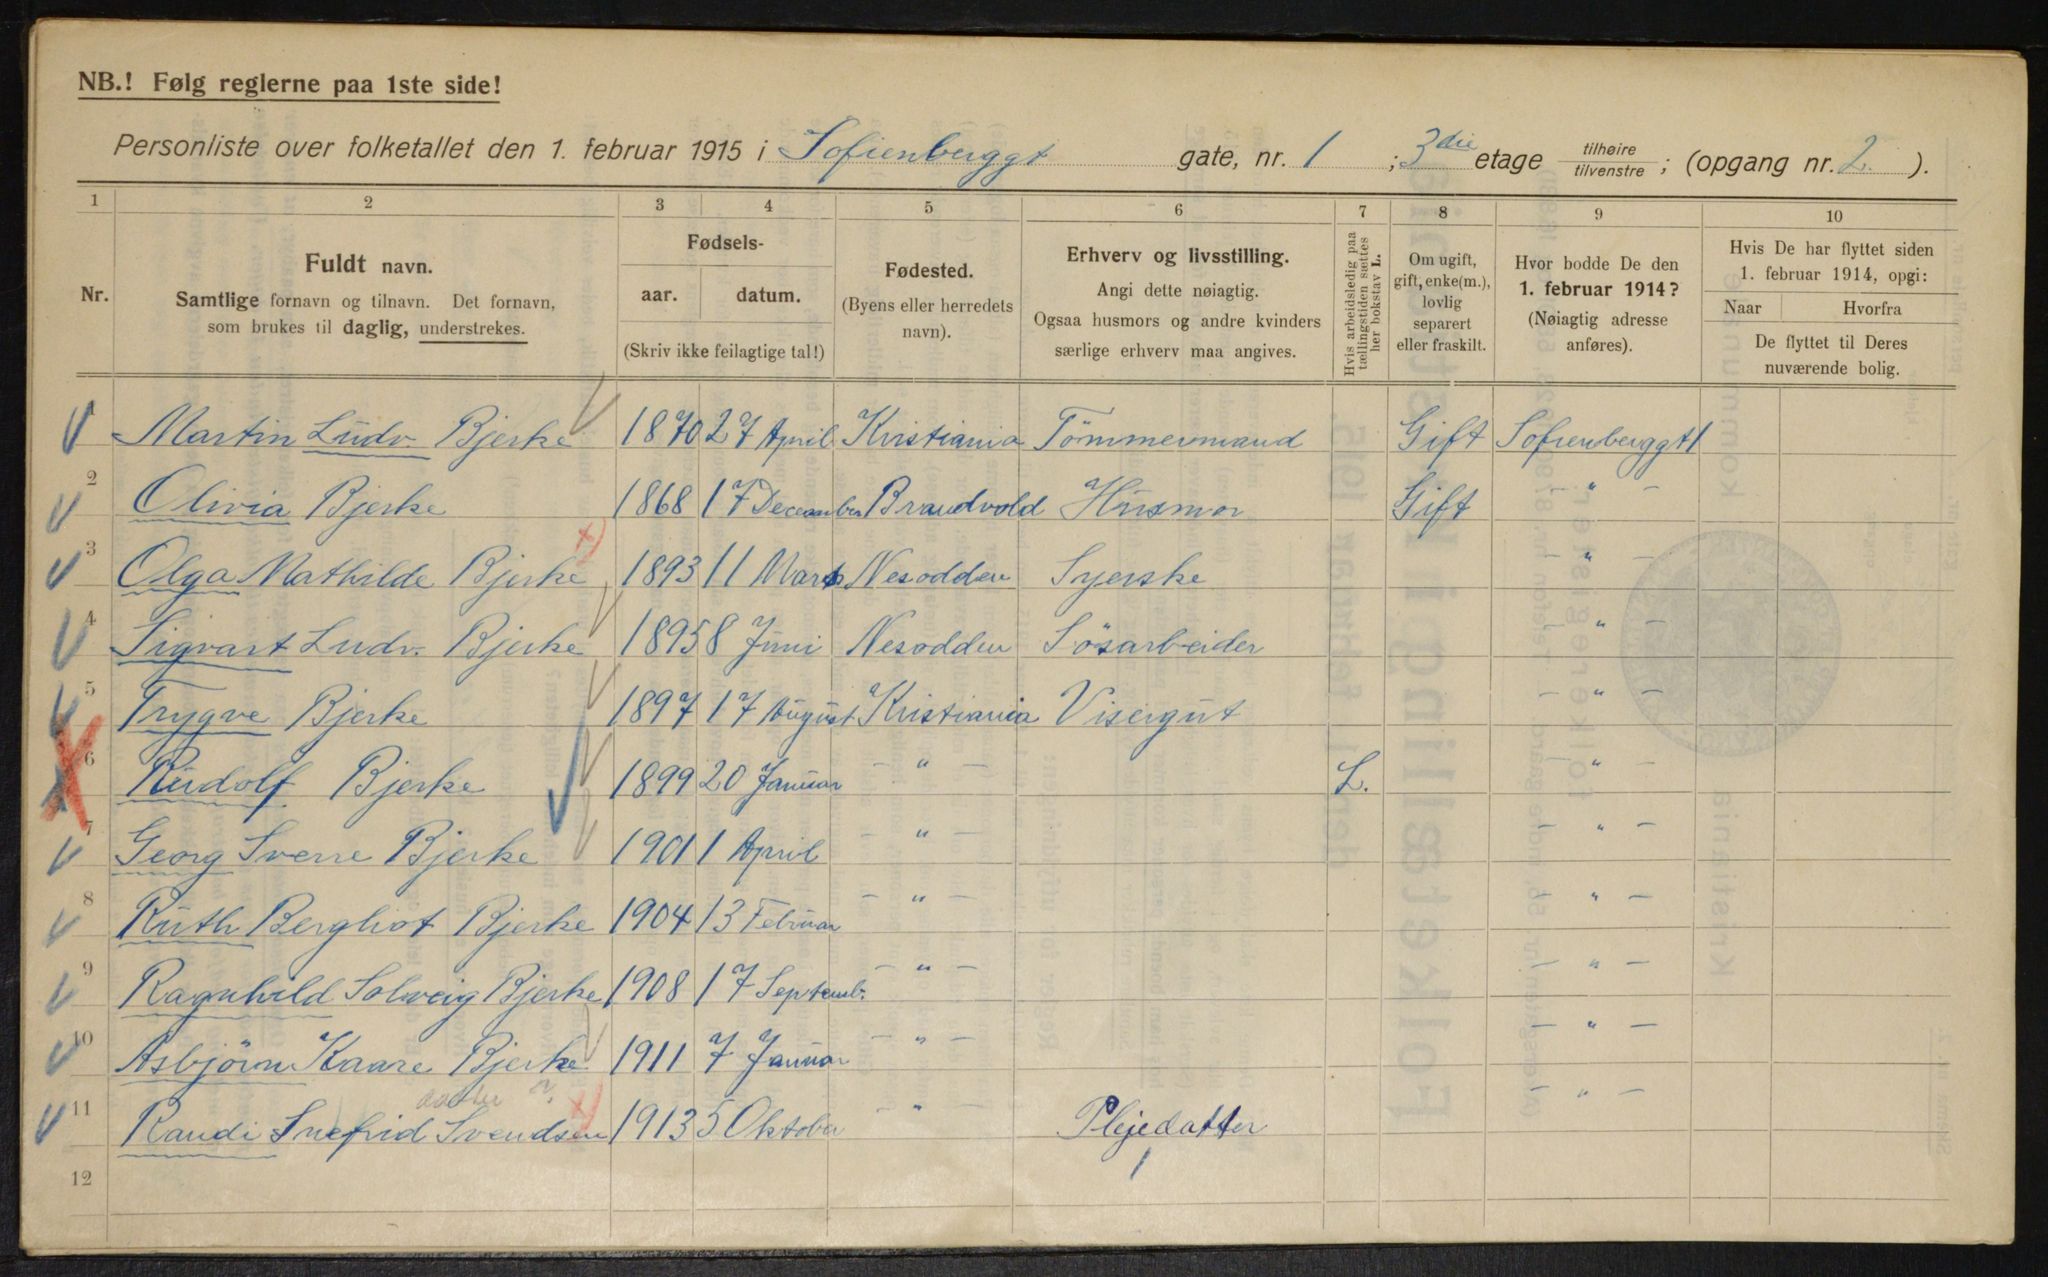 NB.! Følg reglerne paa 1ste side!
Personliste over folketallet den 1. februar 1915 i Sofienberggt gate, nr. 1 ; 3die etage tilhøire/tilvenstre ; (opgang nr. 2. ).
1 2 3 4 5 6 7 8 9 10
Nr.
Fuldt navn.
Samtlige fornavn og tilnavn. Det fornavn,
som brukes til daglig, understrekes.
Fødsels-
aar. datum.
(Skriv ikke feilagtige tal!)
Fødested.
(Byens eller herredets
navn).
Erhverv og livsstilling.
Angi dette nøiagtig.
Ogsaa husmors og andre kvinders
særlige erhverv maa angives.
Hvis arbeidsledig paa
tællingstiden sættes
her bokstav L.
Om ugift,
gift, enke(m.),
lovlig
separert
eller fraskilt.
Hvor bodde De den
1. februar 1914?
(Nøiagtig adresse
anføres).
Hvis De har flyttet siden
1. februar 1914, opgi:
Naar Hvorfra
De flyttet til Deres
nuværende bolig.
1 Martin Ludv. Bjerke 1870 27 April Kristiania Tömmermand Gift Sofienberggt 1
2 Olivia Bjerke 1868 17 December Brandvold Husmor Gift — " —
3 Olga Mathilde Bjerke 1893 11 Mars Nesodden Syerske — " —
4 Sigvart Ludv. Bjerke 1895 8 Juni Nesodden Sösarbeider — " —
5 Trygve Bjerke 1897 17 August Kristiania Visergut — " —
6 Rudolf Bjerke 1899 20 Januar — " — L. — " —
7 Georg Sverre Bjerke 1901 1 April — " — — " —
8 Ruth Bergliot Bjerke 1904 13 Februar — " — — " —
9 Ragnhild Solveig Bjerke 1908 17 Septemb. — " — — " —
10 Asbjörn Kaare Bjerke 1911 7 Januar — " — — " —
11 Randi Snefrid Svendsen 1913 5 Oktober — " — Plejedatter — " —
1
12